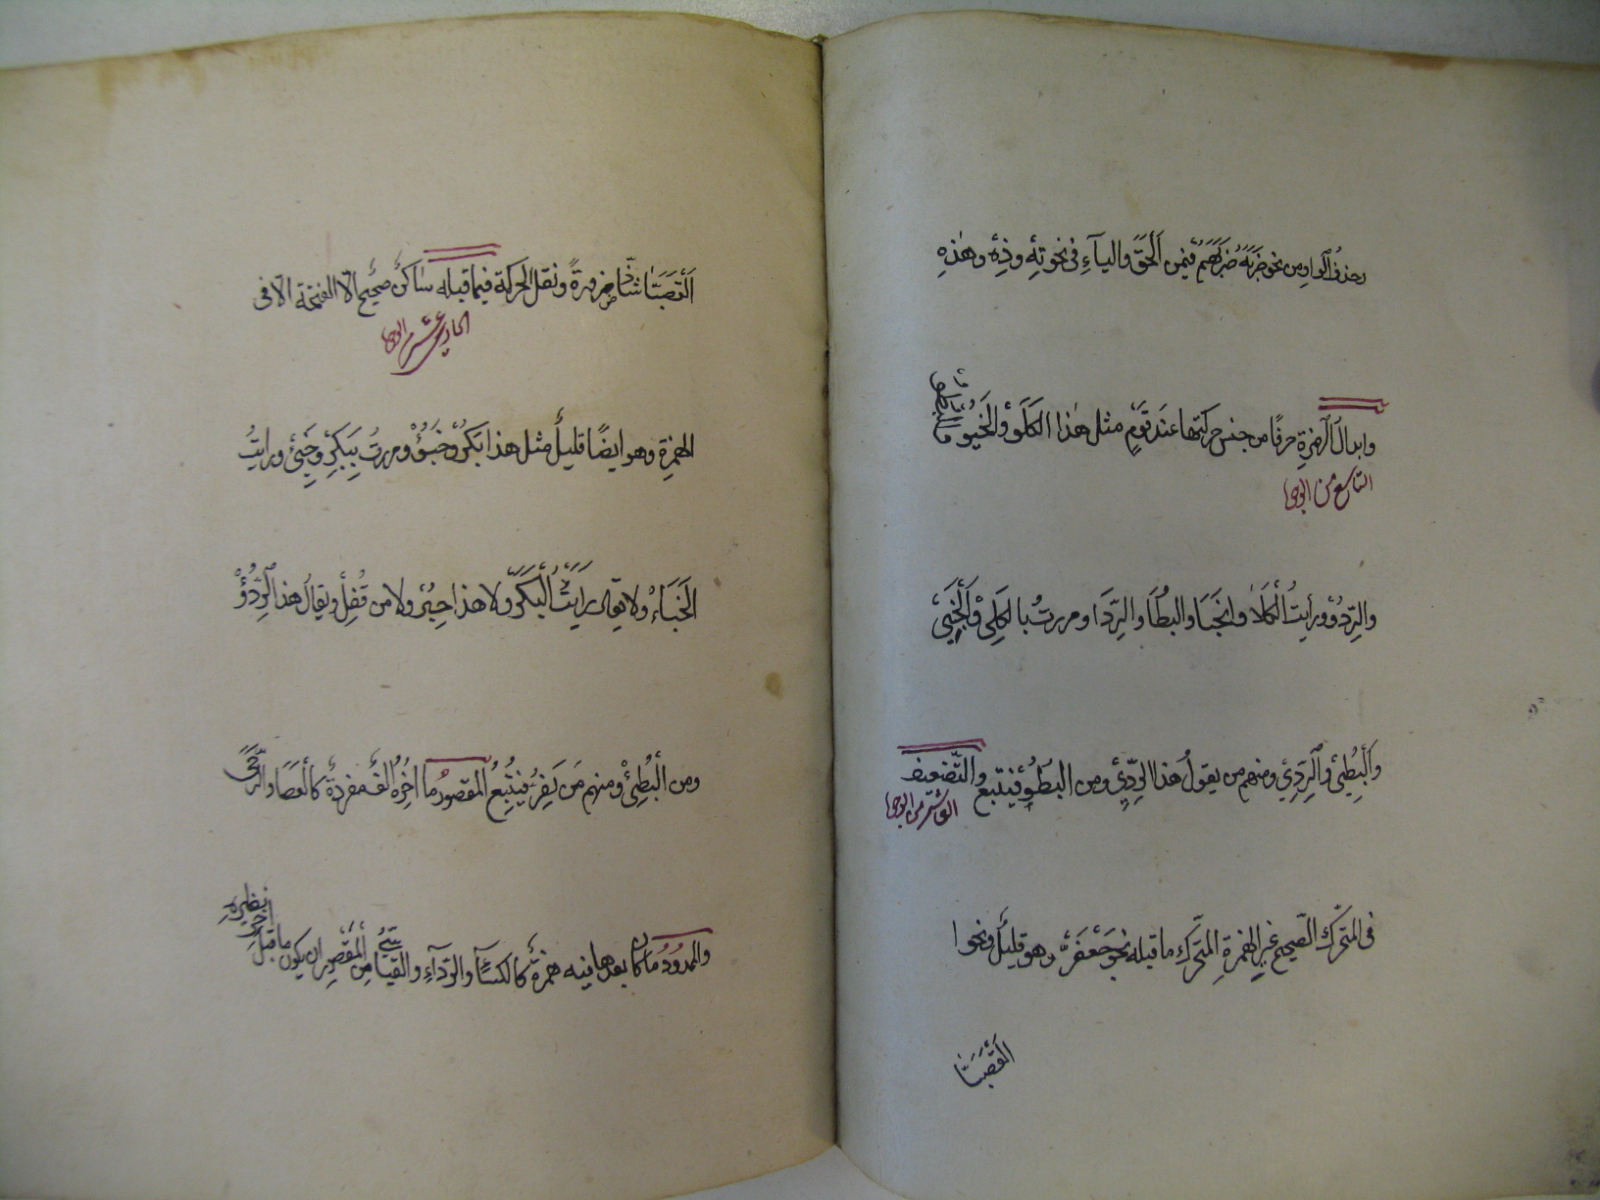 وحذف الواو من نحو ضربهُ ضربهُم فيمن اَلْحَقَ والياءِ فى نحو تِهِ وذِهِ وهٰذِهِ
وابدال الهمزةِ حرفًا من جنس حركتها عند قومٍ مثل هٰذا الكَلَوْ والخَبُو
التاسع من الوجوه
والرِّدُوْ ورايتُ الكَلَا والخَبَا والبُطَا والرِّدَا ومررتُ بالكَلِىْ والخَبِىْ
والبُطِىْ والرِّدِىْ ومنهم من يقولُ هذا الرِّدِىْ ومن البُطُوْ فيتبع والتَّضعيف
العاشر من الوجوه
فى المتحرّك الصّحيح غيرِ الهمزةِ المتحرّك ما قبله نحو جَعْفَرّ وهو قليلٌ ونحو
القَصَبَّا
القَصَبَّا شاذٌّ ضرورةً ونقل الحركة فيما قبله ساكنٌ صحيحٌ الاّ الفتحة الاّ فى
الحادى عشر من الوجوه
الهمزةِ وهو ايضًا قليلٌ مثل هذا بَكُرْ وخَبُؤْ ومررتُ بِبَكِرْ وخَبِئْ ورايتُ
الخَبَأْ ولا يقال رَاَيْتُ البَكَرْ ولا هذا حِبُرْ ولا من قُفِلْ ويقالُ هذا الرِّدُؤْ
ومن البُطِئْ ومنهم مَن يَفِرُّ فيُتْبِعُ المقصورُ ما آخِرُهُ الفٌ مفردةٌ كالعَصَا والرَّحَى
والممدُودُ ما كان بعدها فيه همزةٌ كالكسَآءِ والرِّدآءِ والقياسىّ من المقصورِ ان يكون ما قبلَ
آخر نظيرِهِ